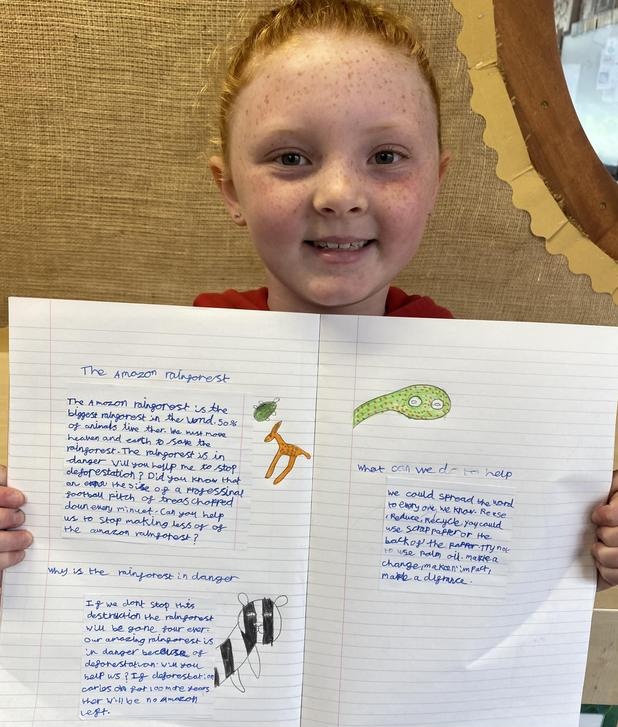 The Amazon rainforest
The Amazon rainforest is the
biggest rainforest in the world. 50%
of animals live ther. We must move
heaven and earth to save the
rainforest. The rainforest is in
danger Will you hellp me to stop
deforestation? Did you know that
an the size of a professional
football pitch of treas chopped
down every minuet. Can you help
us to stop making less of of
the amazon rainforest?
why is the rainforest in danger
If we dont stop this
destruction the rainforest
will be gone four ever.
Our amazing rainforest is
in danger because of
deforestation. will you
help us? If deforestation
carios on for 100 more years
ther will be no Amazon
left.
What can we do to help
we could spread the word
to every one we know. Reuse
, Reduce, Recycle. you could
use scrap papper or the
back of the papper. Try not
to use palm oil. make a
change, make an impact,
make a difrance.